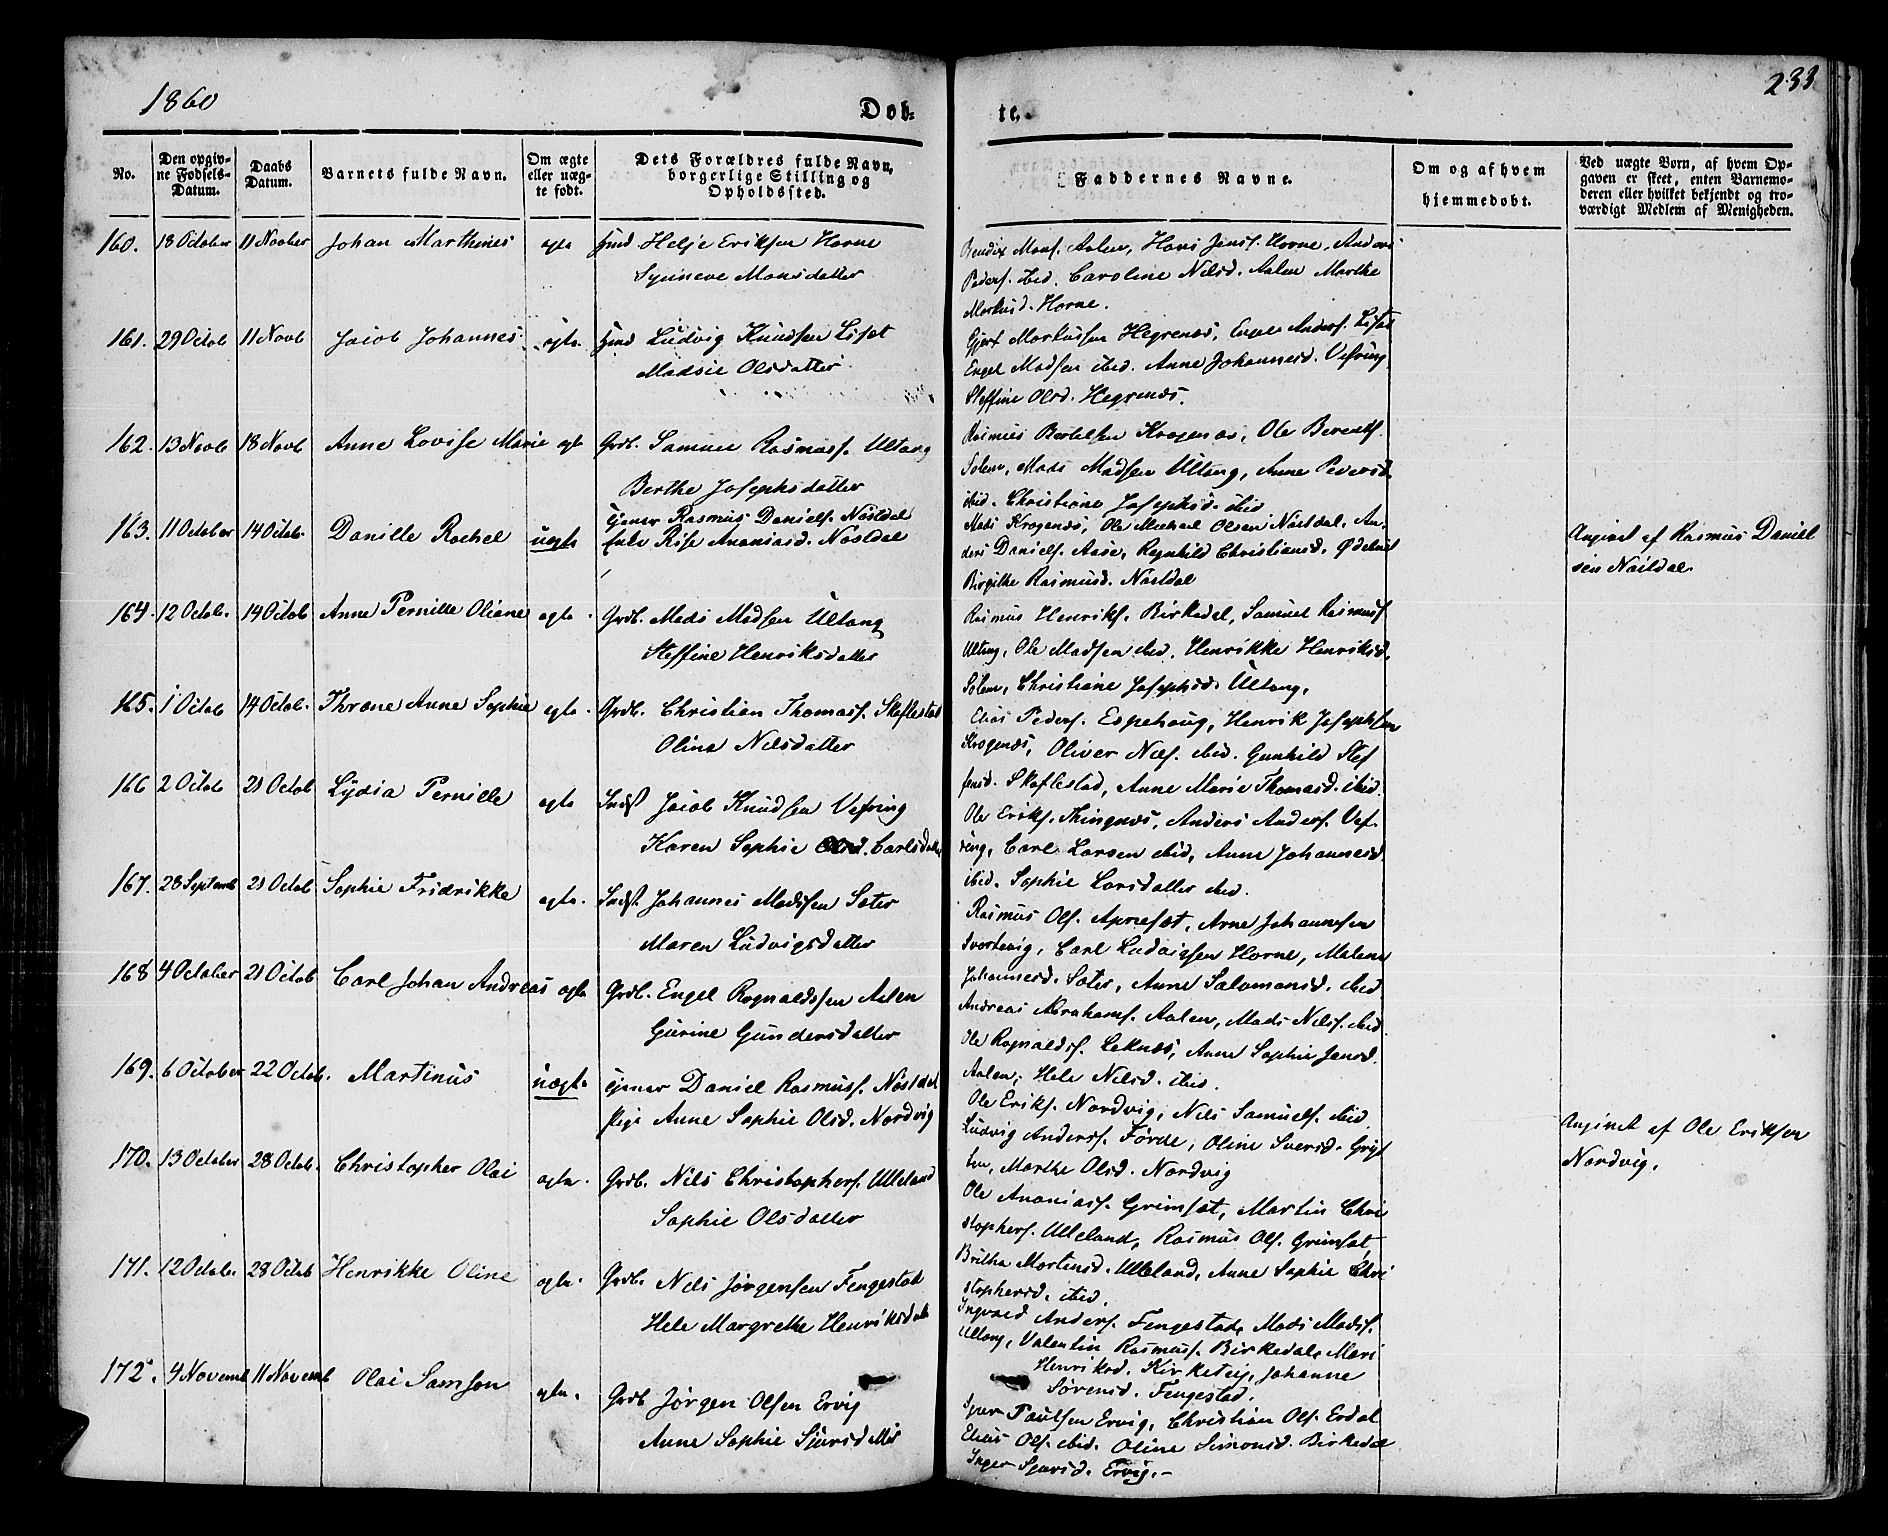 1860
Døb-
te.
233
No.
Den opgiv-
ne Fødsels-
Datum.
Daabs
Datum.
Barnets fulde Navn.
Om ægte
eller uæg-
te født.
Dets Forældres fulde Navn,
borgerlige Stilling og
Opholdssted.
Faddernes Navne.
Om og af hvem
hjemmedøbt.
Ved uægte Børn, af hvem Op-
gaven er skeet, enten Barnemo-
deren eller hvilket bekjendt og tro-
værdigt Medlem af Menigheden.
160. 18 October 11 Novber Johan Marthines ægte Helje Eriksen Horne
Synneve Monsdatter
Bendix Monss. Aalen, Hans Jenss. Horne, Anders
Peders. ibid. Caroline Nilsd. Aalen Marthe
Markusd. Horne.
161. 29 Octob 11 Novb Jacob Johannes ægte Ludvig Knudsen Liset
Madsie Olsdatter
Gjert Markussen Hegrenæs, Engel Anders. Liset
Engel Madsen ibid. Anne Johannesd. Vefring
Steffine Olsd. Hegrenæs.
162. 13 Novb 18 Novb Anne Lovise Marie ægte Grdb. Samuel Rasmuss. Ultang
Berthe Josephsdatter
Rasmus Bertelsen Krogenæs, Ole Berents.
Solem, Mads Madsen Ultang, Anne Pedersd.
ibid. Christiane Josephsd. ibid
163. 11 October 14 Octob. Danille Rachel uægte tjener Rasmus Daniels. Nøstdal
Enke Rise Ananiasd. Nøstdal
Mads Krogenæs, Ole Michael Olsen Nøstdal, An-
ders Daniels. Aase, Ragnhild Christiansd. Ødetvet
Birgithe Rasmusd. Nøstdal
Angivet af Rasmus Daniel
sen Nøstdal
164. 12 Octob. 14 Octob Anne Pernille Oliane ægte Grdb. Mads Madsen Ultang
Steffine Henriksdatter
Rasmus Henriks. Birkedal, Samuel Rasmuss
Ultang, Ole Madsen ibid. Henrikke Henriksd.
Solem, Christiane Josephsd. Ultang,
165. 1 Octob 14 Octob. Throne Anne Sophie ægte Grdb. Christian Thomass. Skaflestad
Oline Nilsdatter
Elias Peders. Espehoug, Henrik Josephsen
Krogenæs, Oliver Nils. ibid. Gunhild Stef
fensd. Skaflestad, Anne Marie Thomasd. ibid.
166 2 Octob 21 Octob Lydia Pernille ægte Indst Jacob Knudsen Vefring
Karen Sophie Olsd. Carlsdatter
Ole Eriks. Thingnæs, Anders Anders. Vef-
ring, Carl Larsen ibid, Anne Johannesd.
ibid. Sophie Larsdatter ibid.
167. 28 Septemb 21 Octob Sophie Fridrikke ægte. Indst Johannes Madssen Sæter
Maren Ludvigsdatter
Rasmus Ols. Apnesæt, Arne Johannesen
Svortevig, Carl Ludvigsen Horne, Malene
Johannesd. Sæter, Anne Salomonsd. ibid
168 4 October 21 Octob Carl Johan Andreas ægte Grdb. Engel Ragnaldssen Aalen
Gurine Gundersdatter
Andreas Abrahams. Aalen, Mads Nils. ibid.
Ole Ragnalds. Leknæs, Anne Sophie Jensd.
Aalen, Hele Nilsd. ibid.
169. 6 October 22 Octob. Martinus uægte tjener Daniel Rasmuss. Nøstdal
Pige Anne Sophie Olsd. Nordvig
Ole Eriks. Nordvig, Nils Samuels. ibid.
Ludvig Anders. Førde, Oline Siversd. Gryt
ten, Marthe Olsd. Nordvig
Angivet af Ole Eriksen
Nordvig.
170. 13 October 28 Octob. Christopher Olai ægte. Grdb. Nils Christophers. Ulleland
Sophie Olsdatter
Ole Ananiass. Grimsæt, Martin Chri
stophers. Ulleland, Rasmus Ols. Grimsæt
Britha Mortensd. Ulleland, Anne Sophie Chri
stophersd. ibid.
171. 12 Octob. 28 Octob Henrikke Oline ægte. Grdb. Nils Jørgensen Fengestad
Hele Margrethe Henriksdatter
Ingvald Anders. Fengestad, Mads Madss.
Ultang, Valentin Rasmuss. Birkedal, Mari
Henriksd. Kirketeig, Johanne
Sørensd. Fengestad.
172. 4 Novemb 11 Novemb Olai Samson ægte. Grdb Jørgen Olsen Ervig
Anne Sophie Sjursdatter
Sjur Paulsen Ervig, Christian Ols. Erdal
Elias Ols. ibid. Oline Simonsd. Birkedal
Inger Sjursd. Ervig.-